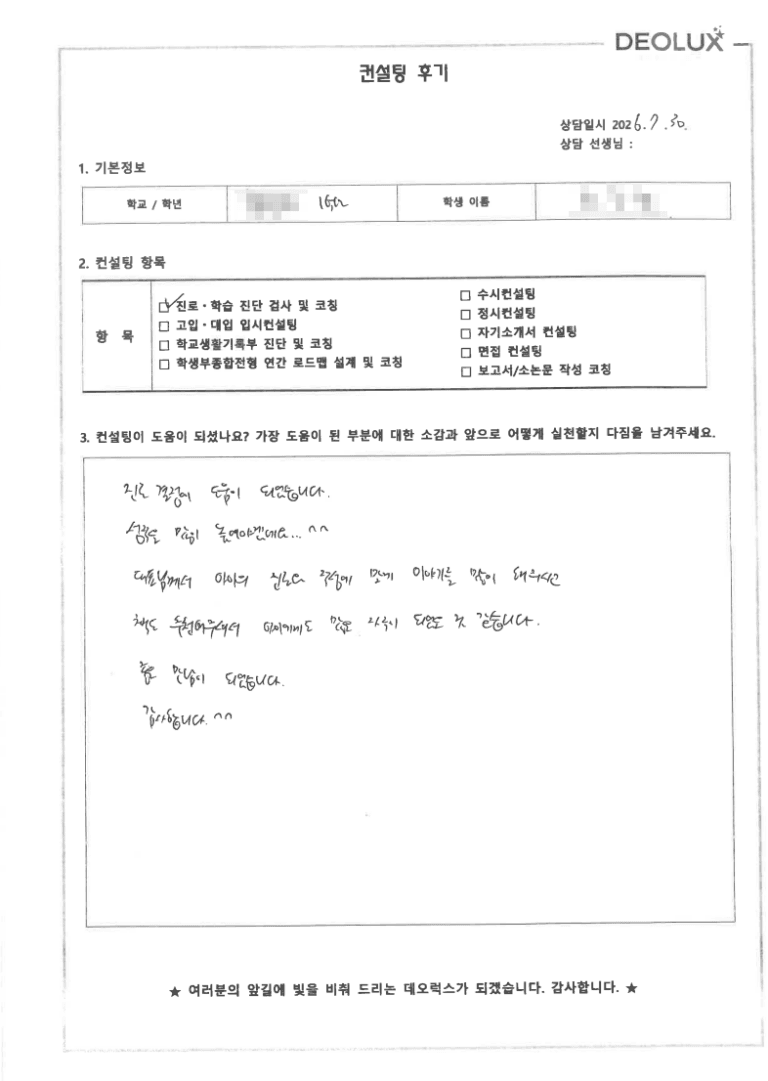 DEOLUX
컨설팅 후기
상담일시 2026.7.30.
상담 선생님 :
1. 기본정보
학교 / 학년 1학년 학생 이름
2. 컨설팅 항목
항 목
☑ 진로·학습 진단 검사 및 코칭
□ 고입·대입 입시컨설팅
□ 학교생활기록부 진단 및 코칭
□ 학생부종합전형 연간 로드맵 설계 및 코칭
□ 수시컨설팅
□ 정시컨설팅
□ 자기소개서 컨설팅
□ 면접 컨설팅
□ 보고서/소논문 작성 코칭
3. 컨설팅이 도움이 되셨나요? 가장 도움이 된 부분에 대한 소감과 앞으로 어떻게 실천할지 다짐을 남겨주세요.
진로 결정에 도움이 되었습니다.
성적을 많이 높여야겠네요... ^^
대표님께서 아이의 진로와 적성에 맞게 이야기를 많이 해주시고
책도 추천해주셔서 아이에게도 많은 자극이 되었던 것 같습니다.
좋은 만남이 되었습니다.
감사합니다. ^^
★ 여러분의 앞길에 빛을 비춰 드리는 데오럭스가 되겠습니다. 감사합니다. ★